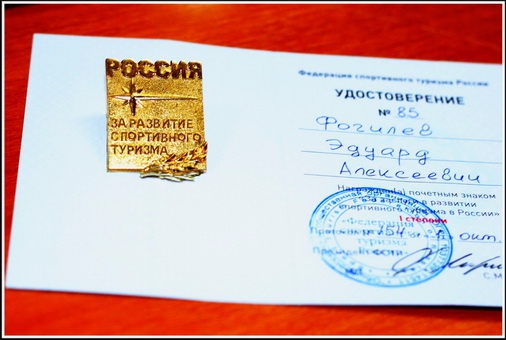 РОССИЯ
ЗА РАЗВИТИЕ
СПОРТИВНОГО
ТУРИЗМА
Федерация спортивного туризма России
УДОСТОВЕРЕНИЕ
№ 85
Фогилев
Эдуард
Алексеевич
Награжден(а) почетным знаком
в развитии
спортивного туризма в России»
I степени
Протокол № 754 от
окт.
«Федерация
спортивного
туризма
Президент ФСТР